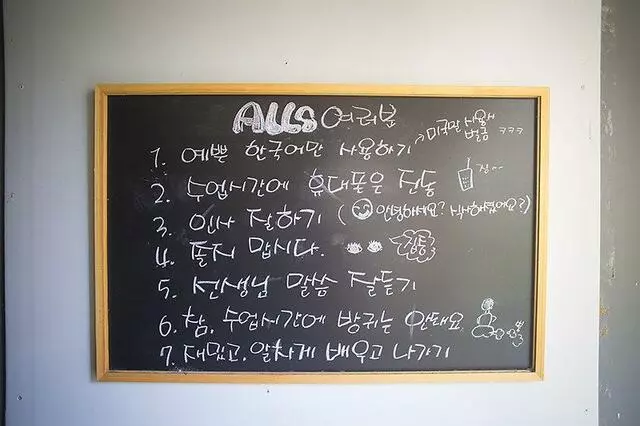 ALLS 여러분
1. 예쁜 한국어만 사용하기 → 미국말 사용시 벌금 ㅋㅋㅋ
2. 수업시간에 휴대폰은 진동 징~~
3. 인사 잘하기 (안녕하세요? 식사하셨어요?)
4. 졸지 맙시다. 집중
5. 선생님 말씀 잘듣기
6. 참, 수업시간에 방귀는 안돼요 뿡
7. 재밌고, 알차게 배우고 나가기